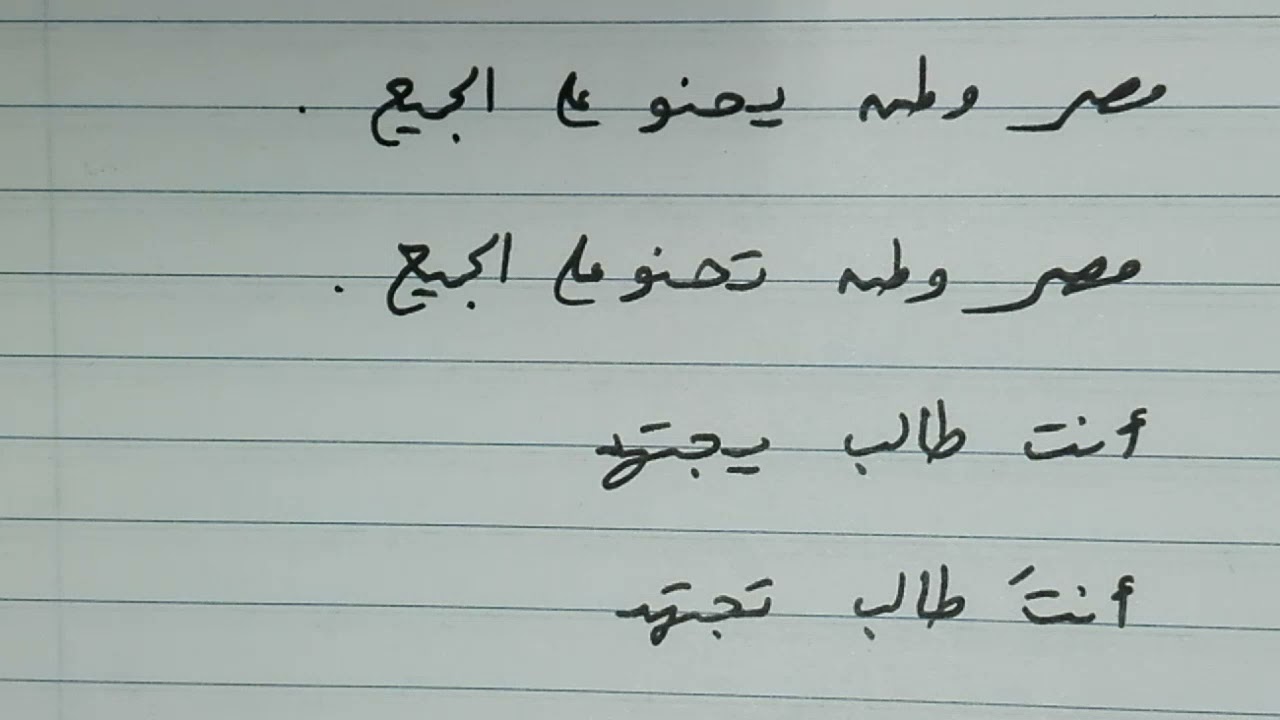 مصر وطن يحنو على الجميع .
مصر وطن تحنو على الجميع .
أنت طالب يجتهد
أنتَ طالب تجتهد